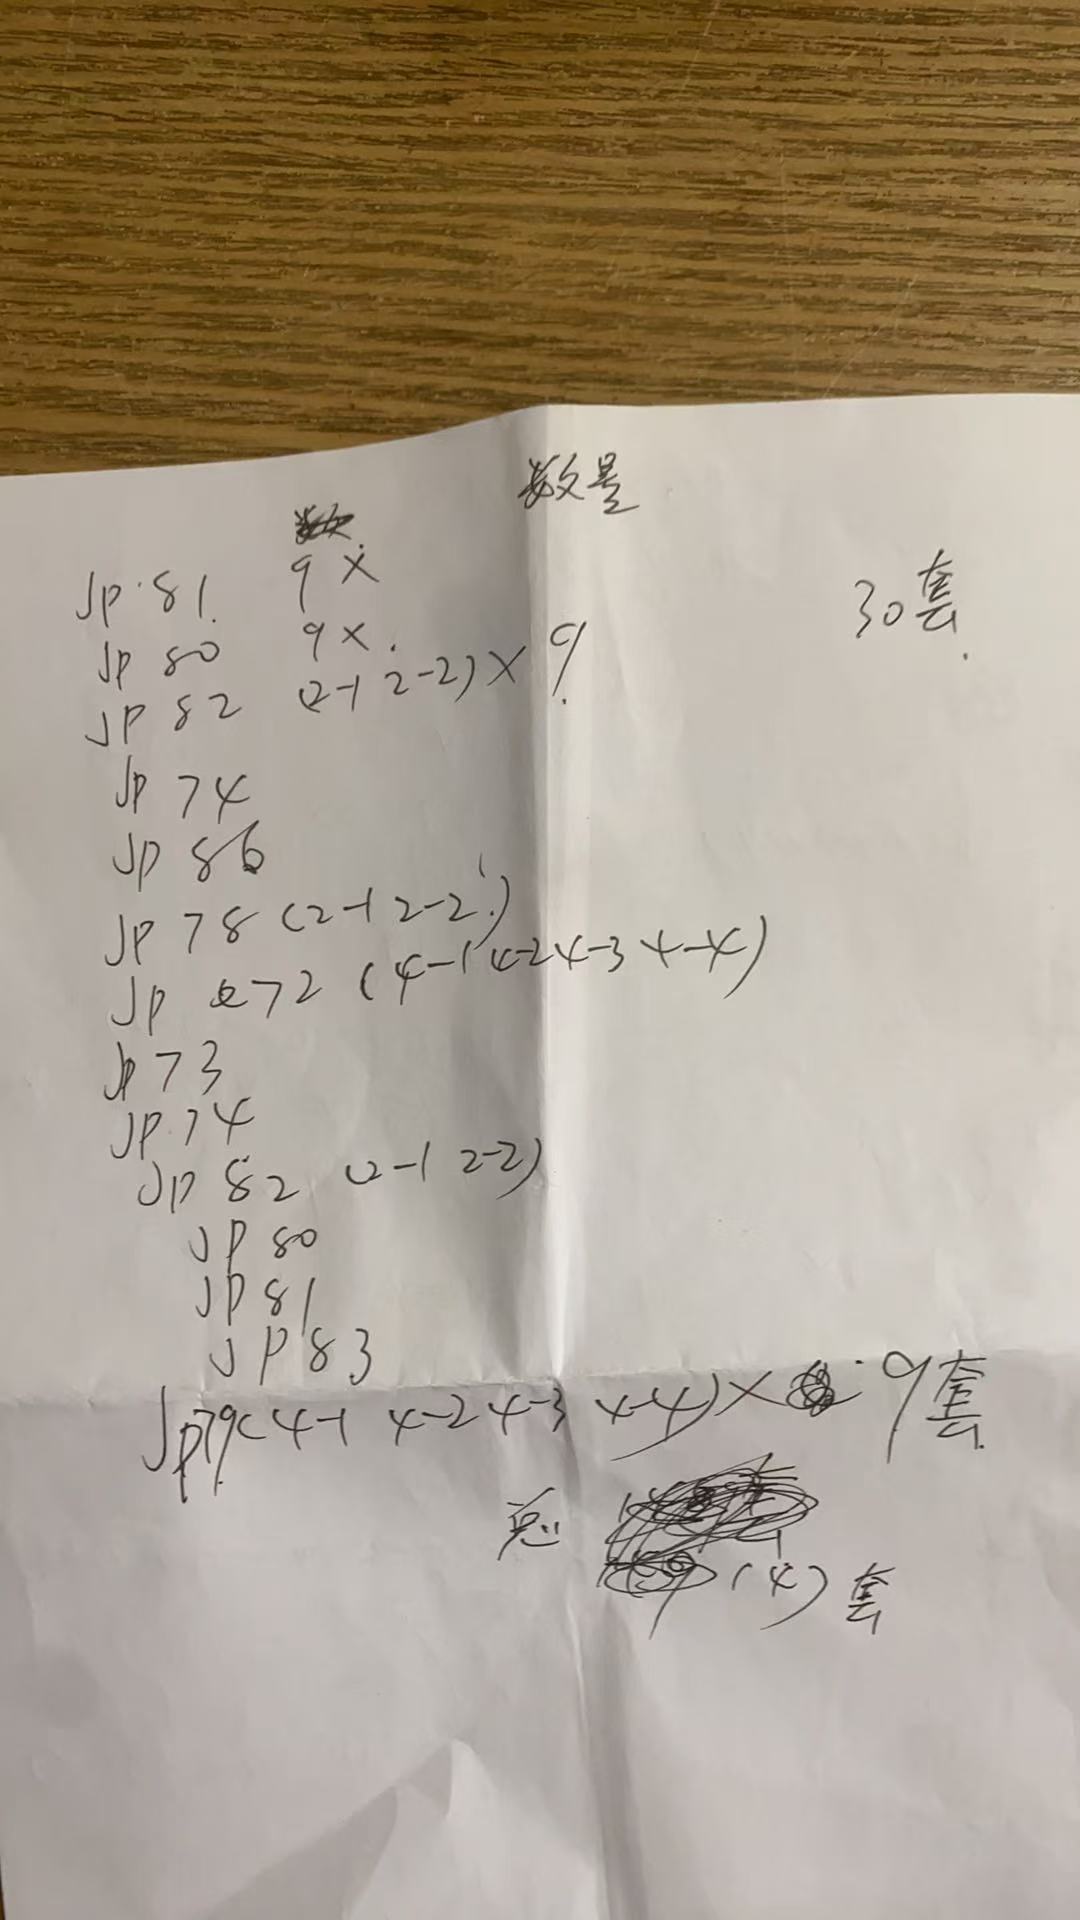 数量
30套
JP 81 9×
JP 80 9×
JP 82 (2-1 2-2)×9
JP 74
JP 86
JP 78 (2-1 2-2)
JP 72 (4-1 4-2 4-3 4-4)
JP 73
JP 74
JP 82 (2-1 2-2)
JP 80
JP 81
JP 83
JP79(4-1 4-2 4-3 4-4)× 9套
(4)套